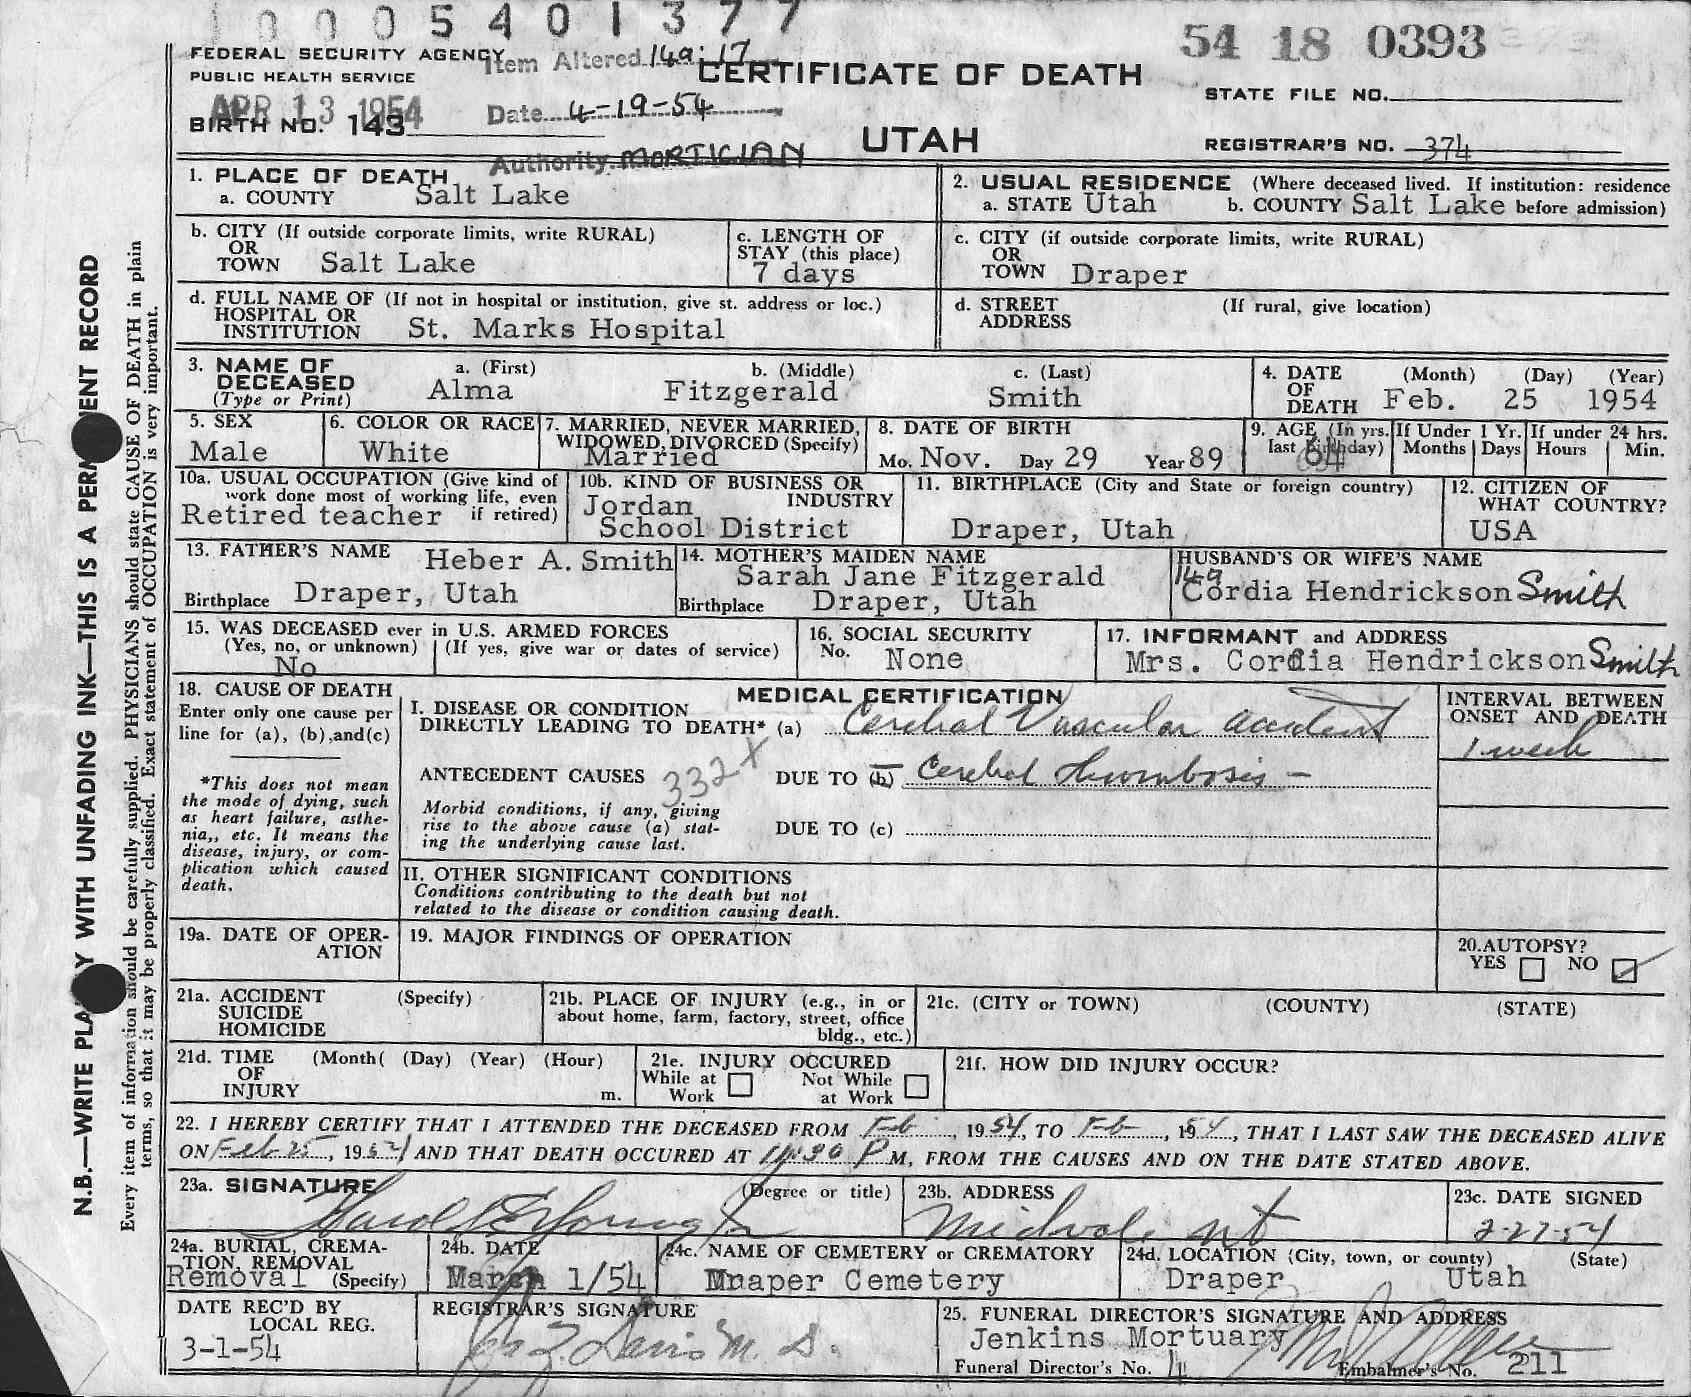 1 0 0 0 5 4 0 1 3 7 7
54 18 0393
FEDERAL SECURITY AGENCY
Item Altered 14a; 17
PUBLIC HEALTH SERVICE
CERTIFICATE OF DEATH
STATE FILE NO.
APR 13 1954
Date 4-19-54
BIRTH NO. 143
UTAH
REGISTRAR'S NO. 374
Authority MORTICIAN
1. PLACE OF DEATH
a. COUNTY Salt Lake
2. USUAL RESIDENCE (Where deceased lived. If institution: residence
a. STATE Utah b. COUNTY Salt Lake before admission)
b. CITY (If outside corporate limits, write RURAL)
OR
TOWN Salt Lake
c. LENGTH OF
STAY (this place)
7 days
c. CITY (if outside corporate limits, write RURAL)
OR
TOWN Draper
d. FULL NAME OF (If not in hospital or institution, give st. address or loc.)
HOSPITAL OR
INSTITUTION St. Marks Hospital
d. STREET (If rural, give location)
ADDRESS
3. NAME OF a. (First) b. (Middle) c. (Last)
DECEASED Alma Fitzgerald Smith
(Type or Print)
4. DATE (Month) (Day) (Year)
OF
DEATH Feb. 25 1954
5. SEX
Male
6. COLOR OR RACE
White
7. MARRIED, NEVER MARRIED,
WIDOWED, DIVORCED (Specify)
Married
8. DATE OF BIRTH
Mo. Nov. Day 29 Year 89
9. AGE (In yrs. last birthday)
64
If Under 1 Yr.
Months Days
If under 24 hrs.
Hours Min.
10a. USUAL OCCUPATION (Give kind of
work done most of working life, even
Retired teacher if retired)
10b. KIND OF BUSINESS OR
Jordan INDUSTRY
School District
11. BIRTHPLACE (City and State or foreign country)
Draper, Utah
12. CITIZEN OF
WHAT COUNTRY?
USA
13. FATHER'S NAME Heber A. Smith
Birthplace Draper, Utah
14. MOTHER'S MAIDEN NAME
Sarah Jane Fitzgerald
Birthplace Draper, Utah
HUSBAND'S OR WIFE'S NAME
14a
Cordia Hendrickson Smith
15. WAS DECEASED ever in U.S. ARMED FORCES
(Yes, no, or unknown) (If yes, give war or dates of service)
No
16. SOCIAL SECURITY
No. None
17. INFORMANT and ADDRESS
Mrs. Cordia Hendrickson Smith
18. CAUSE OF DEATH
Enter only one cause per
line for (a), (b), and (c)
*This does not mean
the mode of dying, such
as heart failure, asthe-
nia,, etc. It means the
disease, injury, or com-
plication which caused
death.
MEDICAL CERTIFICATION
I. DISEASE OR CONDITION
DIRECTLY LEADING TO DEATH* (a) Cerebral Vascular accident
ANTECEDENT CAUSES 332X DUE TO (b) Cerebral Thrombosis -
Morbid conditions, if any, giving
rise to the above cause (a) stat-
ing the underlying cause last.
DUE TO (c)
INTERVAL BETWEEN
ONSET AND DEATH
1 week
II. OTHER SIGNIFICANT CONDITIONS
Conditions contributing to the death but not
related to the disease or condition causing death.
19a. DATE OF OPER-
ATION
19. MAJOR FINDINGS OF OPERATION
20. AUTOPSY?
YES NO
21a. ACCIDENT (Specify)
SUICIDE
HOMICIDE
21b. PLACE OF INJURY (e.g., in or
about home, farm, factory, street, office
bldg., etc.)
21c. (CITY or TOWN) (COUNTY) (STATE)
21d. TIME (Month( (Day) (Year) (Hour)
OF
INJURY m.
21e. INJURY OCCURED
While at Not While
Work at Work
21f. HOW DID INJURY OCCUR?
22. I HEREBY CERTIFY THAT I ATTENDED THE DECEASED FROM Feb, 1954, TO Feb, 1954, THAT I LAST SAW THE DECEASED ALIVE
ON Feb 25, 1954 AND THAT DEATH OCCURED AT 11:30 P M, FROM THE CAUSES AND ON THE DATE STATED ABOVE.
23a. SIGNATURE (Degree or title)
Harold E Young Jr
23b. ADDRESS
Midvale Ut
23c. DATE SIGNED
2-27-54
24a. BURIAL, CREMA-
TION, REMOVAL
Removal (Specify)
24b. DATE
March 1/54
24c. NAME OF CEMETERY or CREMATORY
Draper Cemetery
24d. LOCATION (City, town, or county) (State)
Draper Utah
DATE REC'D BY
LOCAL REG.
3-1-54
REGISTRAR'S SIGNATURE
Davis M. D.
25. FUNERAL DIRECTOR'S SIGNATURE AND ADDRESS
Jenkins Mortuary
Funeral Director's No. 4 Embalmer's No. 211
N.B.—WRITE PLAINLY WITH UNFADING INK—THIS IS A PERMANENT RECORD
Every item of information should be carefully supplied. PHYSICIANS should state CAUSE OF DEATH in plain
terms, so that it may be properly classified. Exact statement of OCCUPATION is very important.